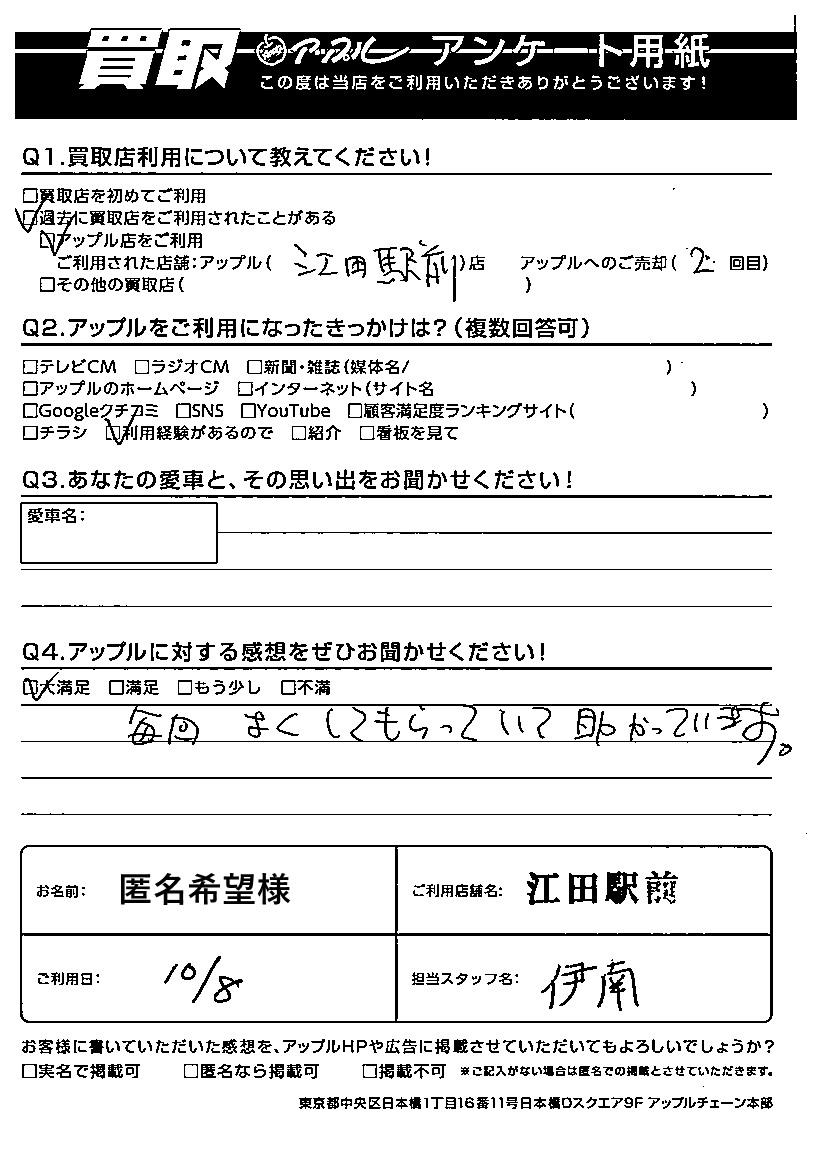 買取 アップル アンケート用紙
この度は当店をご利用いただきありがとうございます!
Q1.買取店利用について教えてください!
□買取店を初めてご利用
☑過去に買取店をご利用されたことがある
☑アップル店をご利用
ご利用された店舗:アップル(江田駅前)店 アップルへのご売却(2 回目)
□その他の買取店( )
Q2.アップルをご利用になったきっかけは?(複数回答可)
□テレビCM □ラジオCM □新聞・雑誌(媒体名/ )
□アップルのホームページ □インターネット(サイト名 )
□Googleクチコミ □SNS □YouTube □顧客満足度ランキングサイト( )
□チラシ ☑利用経験があるので □紹介 □看板を見て
Q3.あなたの愛車と、その思い出をお聞かせください!
愛車名:
Q4.アップルに対する感想をぜひお聞かせください!
☑大満足 □満足 □もう少し □不満
毎回 よくしてもらっていて助かっています。
お名前: 匿名希望様 ご利用店舗名: 江田駅前
ご利用日: 10/8 担当スタッフ名: 伊南
お客様に書いていただいた感想を、アップルHPや広告に掲載させていただいてもよろしいでしょうか?
□実名で掲載可 □匿名なら掲載可 □掲載不可 ※ご記入がない場合は匿名での掲載とさせていただきます。
東京都中央区日本橋1丁目16番11号日本橋Dスクエア9F アップルチェーン本部